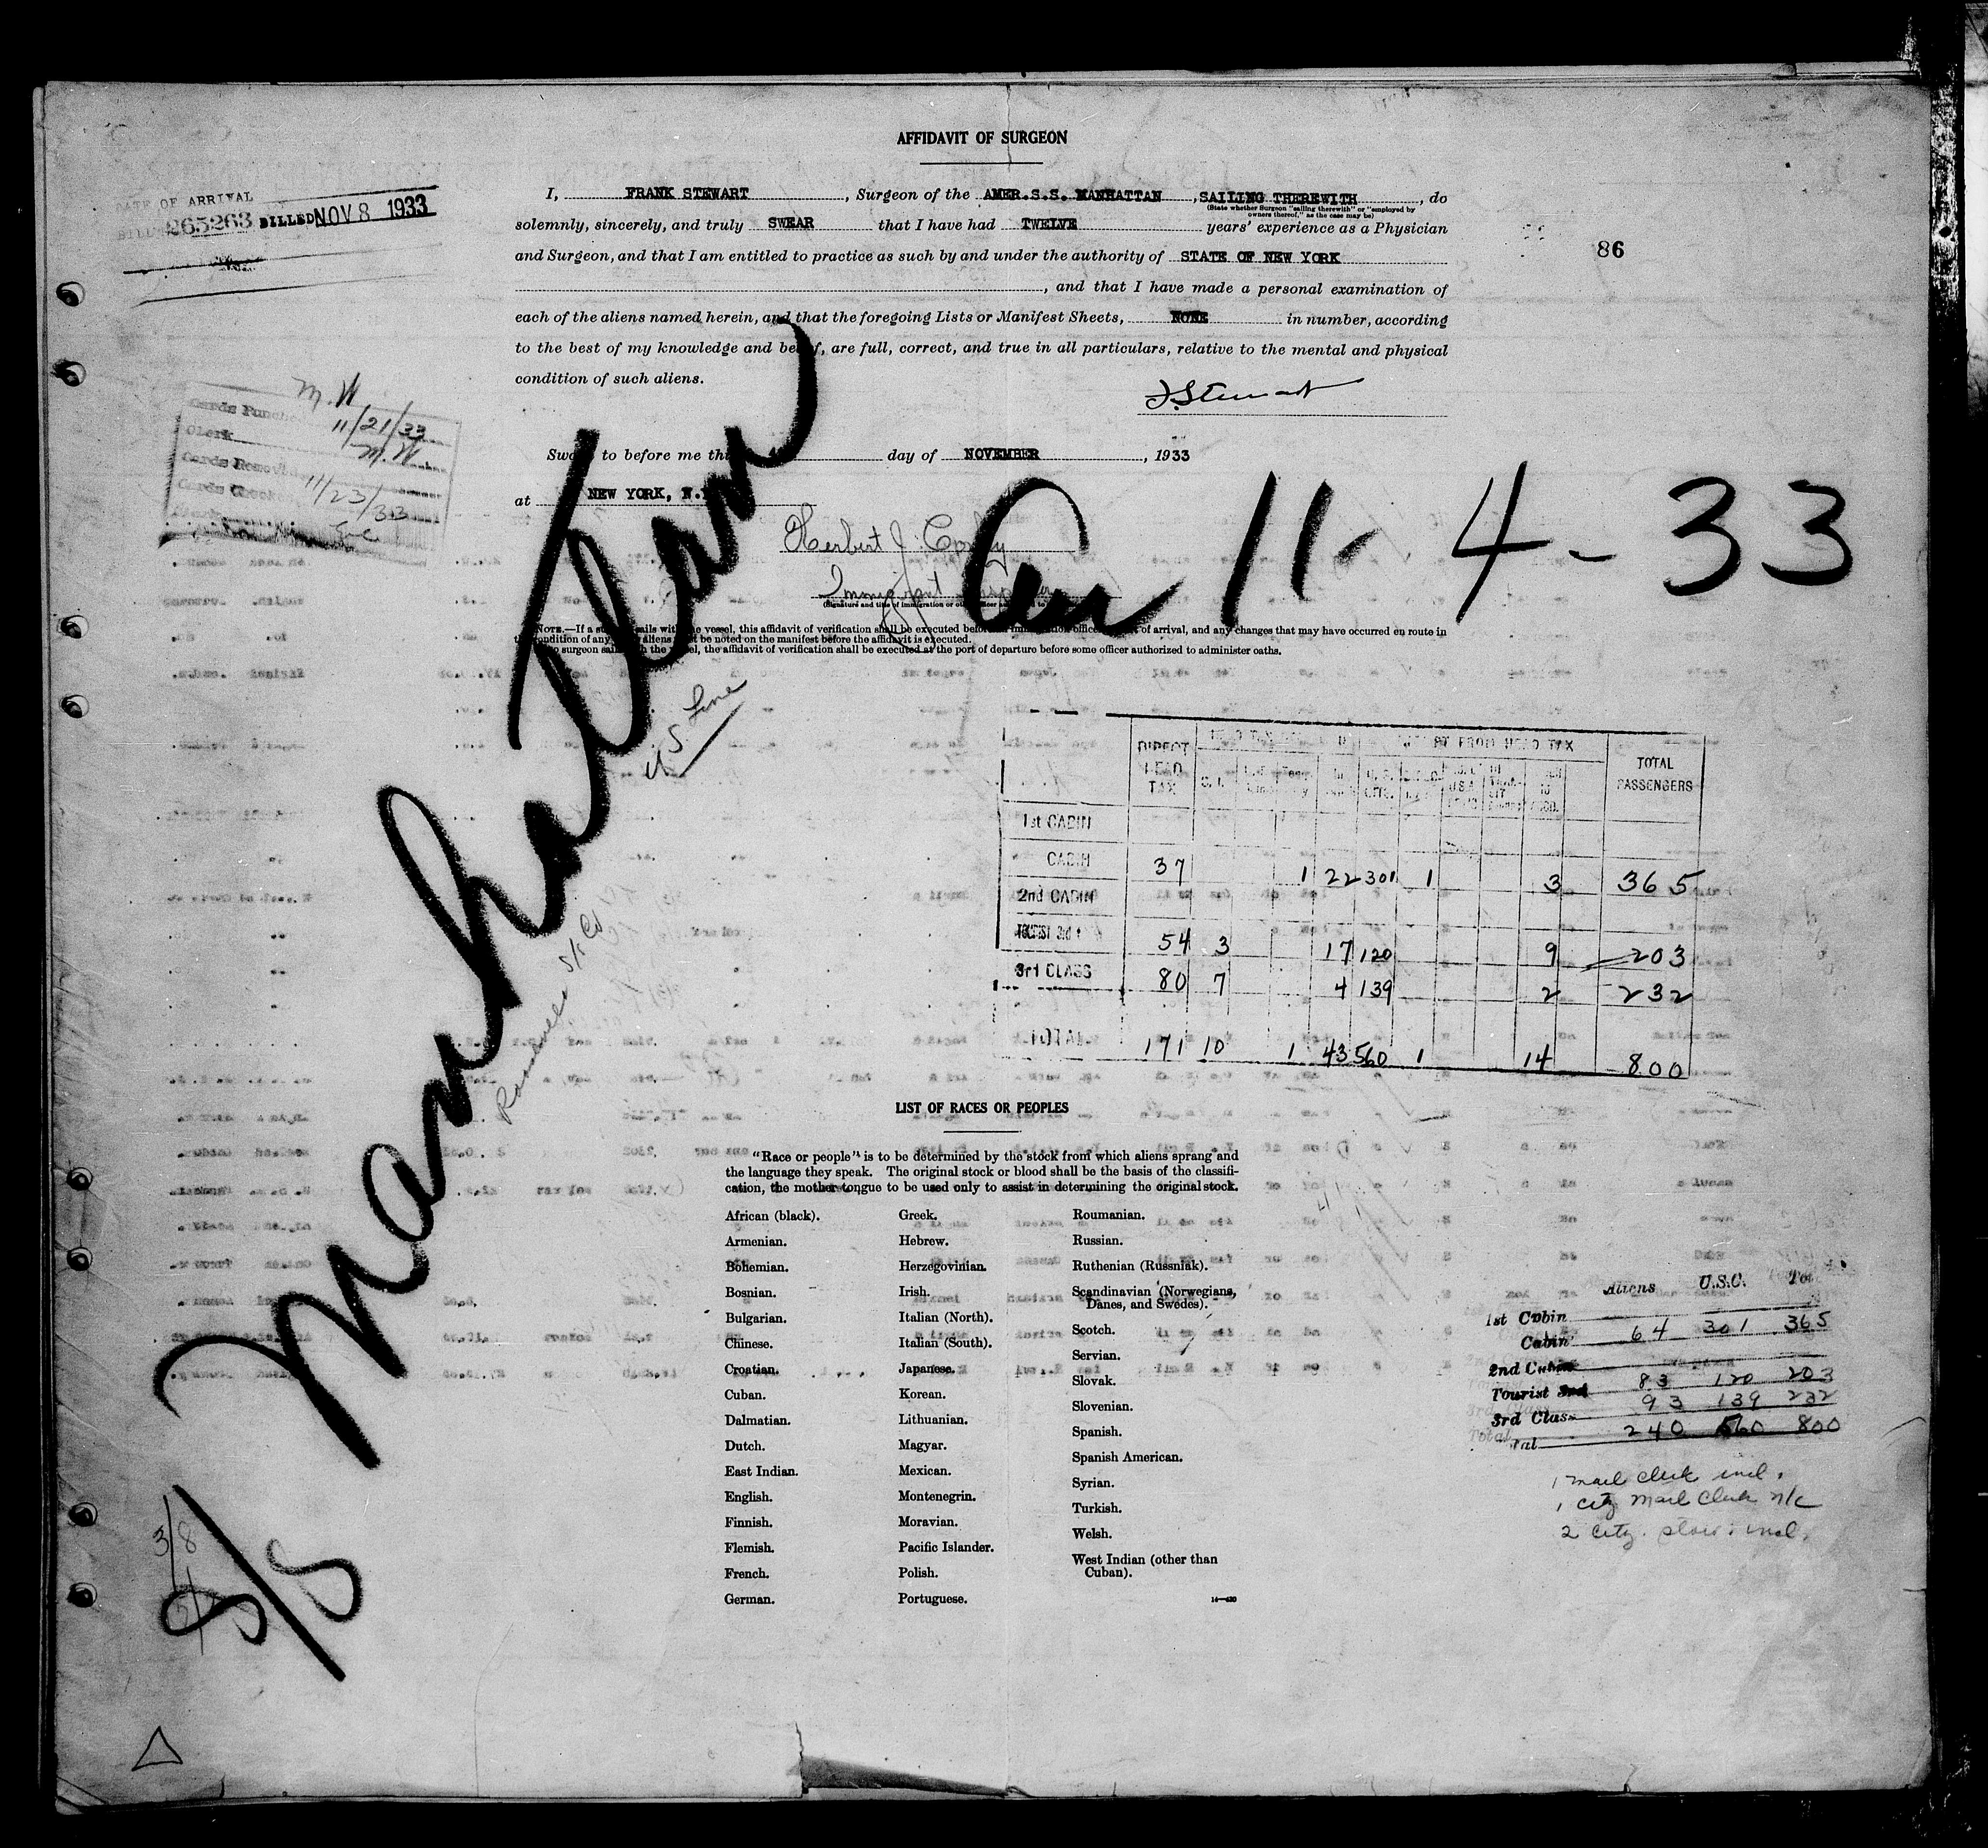 AFFIDAVIT OF SURGEON
I, FRANK STEWART, Surgeon of the AMER.S.S. MANHATTAN, SAILING THEREWITH, do
(State whether Surgeon "sailing therewith" or "employed by
owners thereof," as the case may be)
solemnly, sincerely, and truly SWEAR that I have had TWELVE years' experience as a Physician
and Surgeon, and that I am entitled to practice as such by and under the authority of STATE OF NEW YORK
, and that I have made a personal examination of
each of the aliens named herein, and that the foregoing Lists or Manifest Sheets, NONE in number, according
to the best of my knowledge and belief, are full, correct, and true in all particulars, relative to the mental and physical
condition of such aliens.
F. Stewart
Sworn to before me this day of NOVEMBER, 1933
at NEW YORK, N.Y.
Herbert J.
Immigrant Inspector
(Signature and title of immigration or other officer
DATE OF ARRIVAL
265263 BILLED NOV 8 1933
86
M.W
Cards Punched 11/21/33
Clerk M.W
Cards Removed
Cards Checked 11/23/33
Manhattan
Arr 11-4-33
U S Line
Roosevelt S/S Co
NOTE.—If a surgeon sails with the vessel, this affidavit of verification shall be executed before an immigration officer at port of arrival, and any changes that may have occurred en route in
the condition of any of the aliens must be noted on the manifest before the affidavit is executed.
If no surgeon sails with the vessel, the affidavit of verification shall be executed at the port of departure before some officer authorized to administer oaths.
DIRECT HEAD TAX
EXEMPT FROM HEAD TAX
TOTAL PASSENGERS
1st CABIN
CABIN 37 1 22 301 1 3 365
2nd CABIN
TOURIST 3rd 54 3 17 120 9 203
3rd CLASS 80 7 4 139 2 232
TOTAL 171 10 1 43 560 1 14 800
LIST OF RACES OR PEOPLES
"Race or people" is to be determined by the stock from which aliens sprang and
the language they speak. The original stock or blood shall be the basis of the classifi-
cation, the mother tongue to be used only to assist in determining the original stock.
African (black).
Armenian.
Bohemian.
Bosnian.
Bulgarian.
Chinese.
Croatian.
Cuban.
Dalmatian.
Dutch.
East Indian.
English.
Finnish.
Flemish.
French.
German.
Greek.
Hebrew.
Herzegovinian.
Irish.
Italian (North).
Italian (South).
Japanese.
Korean.
Lithuanian.
Magyar.
Mexican.
Montenegrin.
Moravian.
Pacific Islander.
Polish.
Portuguese.
Roumanian.
Russian.
Ruthenian (Russniak).
Scandinavian (Norwegians,
Danes, and Swedes).
Scotch.
Servian.
Slovak.
Slovenian.
Spanish.
Spanish American.
Syrian.
Turkish.
Welsh.
West Indian (other than
Cuban).
Aliens U.S.C. Tot
1st Cabin
Cabin 64 301 365
2nd Cabin
Tourist 3rd 83 120 203
3rd Class 93 139 232
Total 240 560 800
1 mail clerk incl.
1 city mail clerk n/c
2 city incl.
3/8
8/8